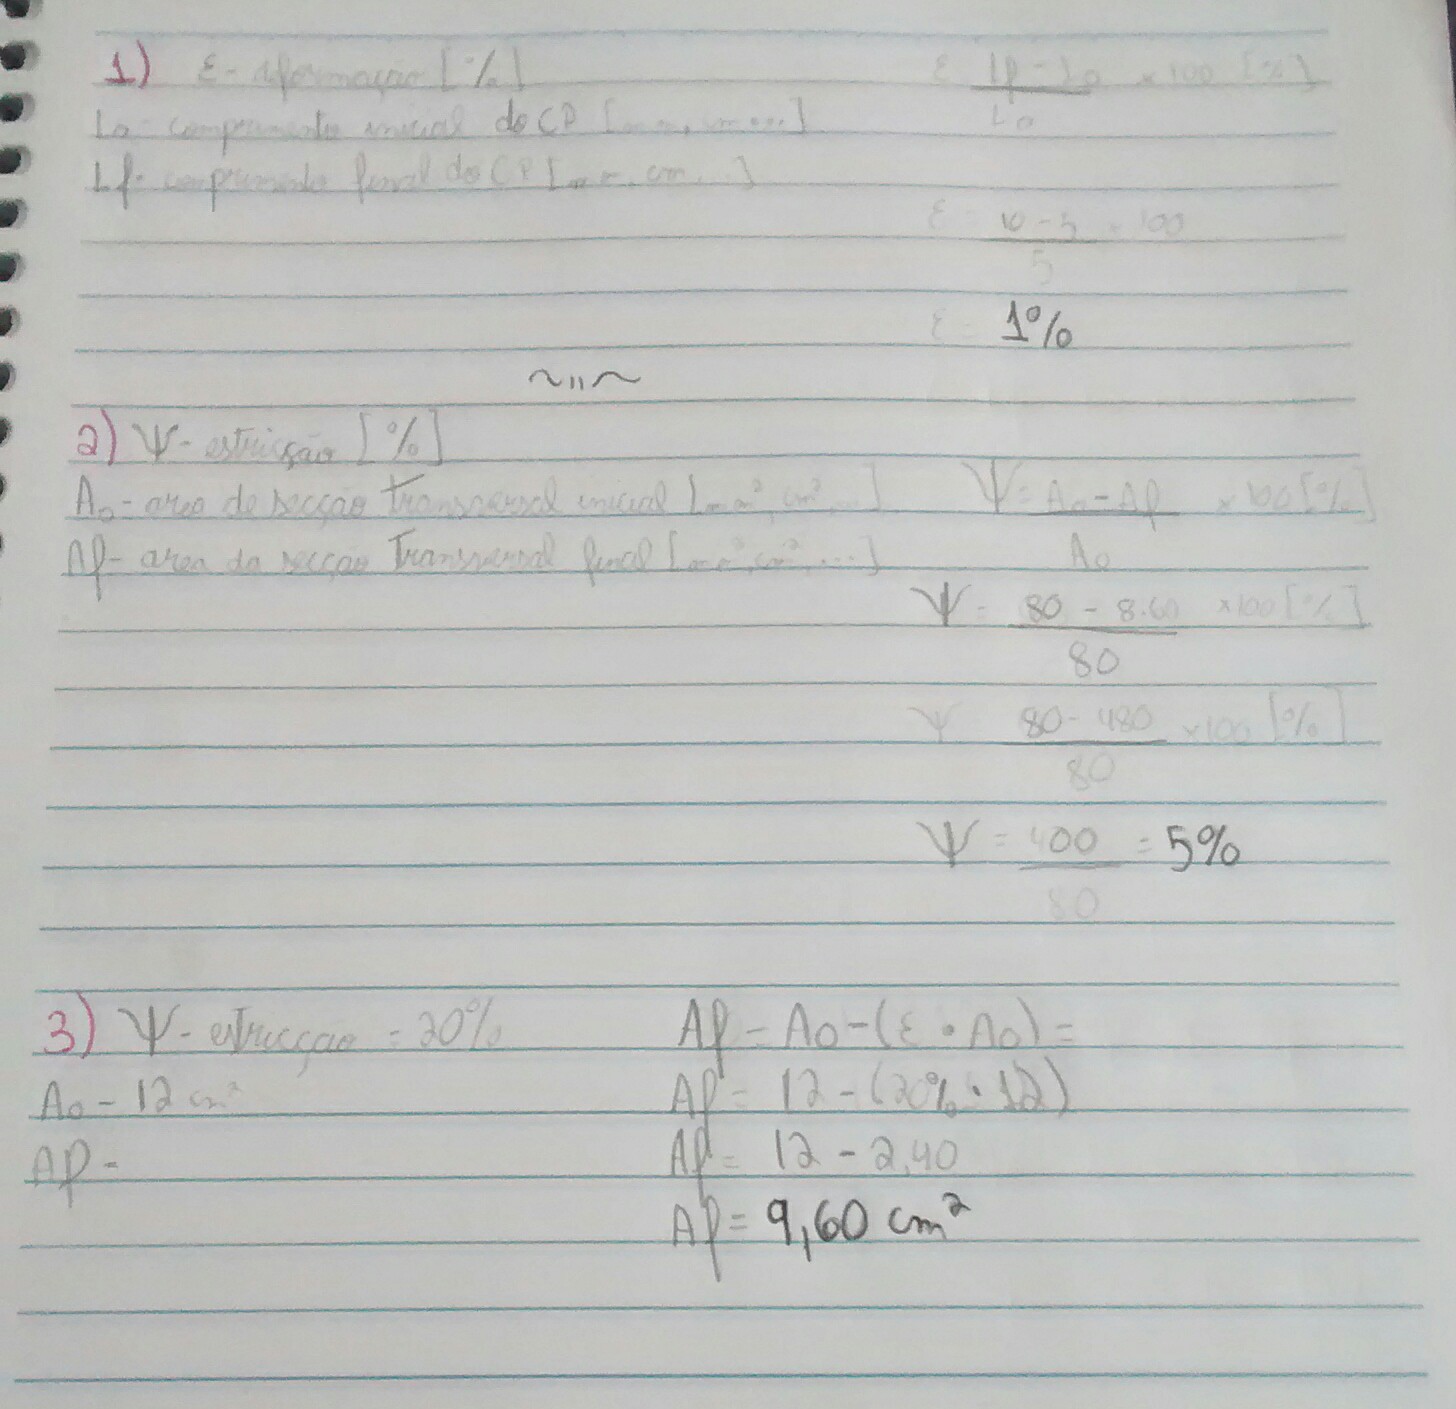 1) ε - deformação [%]
ε = Lf - Lo × 100 [%]
Lo
Lo - comprimento inicial do CP [mm, cm ...]
Lf - comprimento final do CP [mm, cm, ...]
ε = 10 - 5 × 100
5
ε = 1%
~ıı~
2) Ψ - estricção [%]
Ao - area de secção transversal inicial [mm², cm², ...]
Ψ = Ao - Af × 100 [%]
Ao
Af - area da secção Transversal final [mm², cm², ...]
Ψ = 80 - 8.60 × 100 [%]
80
Ψ 80 - 480 × 100 [%]
80
Ψ = 400 = 5%
80
3) Ψ - estricção = 20%
Ao - 12 cm²
Af -
Af = Ao - (ε • Ao) =
Af = 12 - (20% • 12)
Af = 12 - 2,40
Af = 9,60 cm²